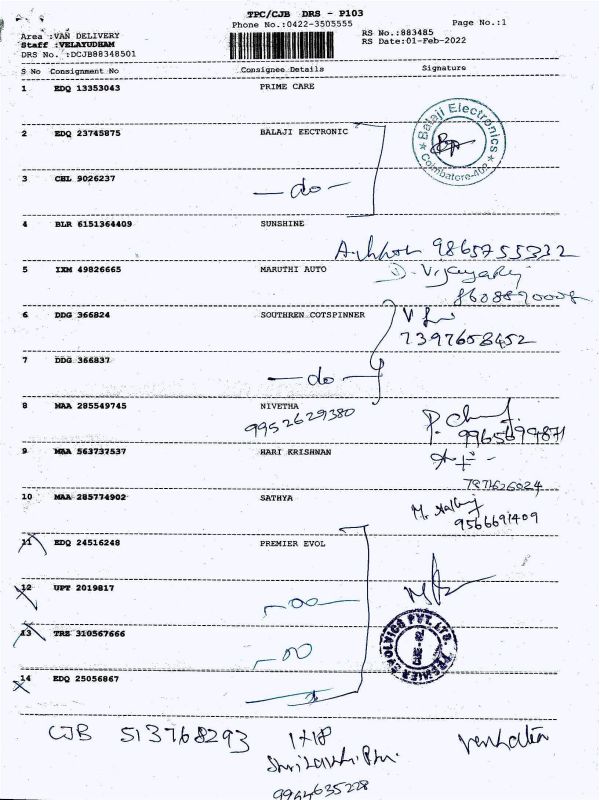 TPC/CJB DRS - P103
Phone No.:0422-3505555
Page No.:1
Area :VAN DELIVERY
Staff :VELAYUDHAM
DRS No. :DCJB88348501
RS No.:883485
RS Date:01-Feb-2022
S No Consignment No Consignee Details Signature
1 EDQ 13353043 PRIME CARE
2 EDQ 23745875 BALAJI EECTRONIC
Balaji Electronics
Coimbatore-402
3 CHL 9026237 - do -
4 BLR 6151364409 SUNSHINE
9865755332
5 IXM 49826665 MARUTHI AUTO
6 DDG 366824 SOUTHREN COTSPINNER
7397658452
7 DDG 366837 - do -
8 MAA 285549745 NIVETHA
9952629380
9 MAA 563737537 HARI KRISHNAN
10 MAA 285774902 SATHYA
9566691409
11 EDQ 24516248 PREMIER EVOL
12 UPT 2019817
13 TRZ 310567666
PREMIER EVOLVICS PVT. LTD.
14 EDQ 25056867
CJB 513768293
9944635228